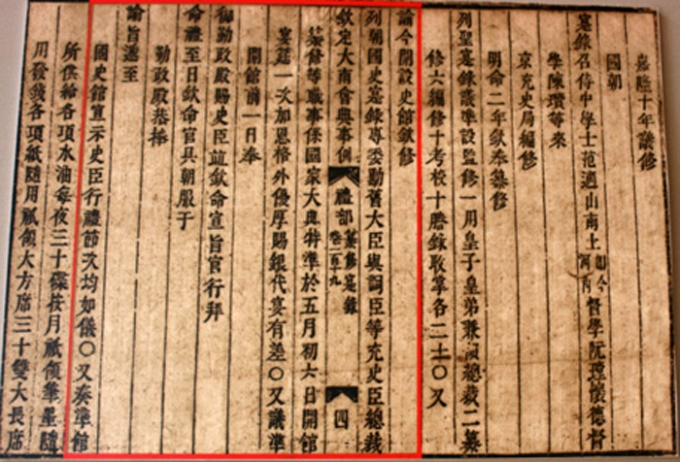 嘉隆十年議修
國朝
寔錄召侍中學士范適山南上即今河內督學阮瑝懷德督
學陳瓚等來
京充史局編修
明命二年欽奉纂修
列聖寔錄議準設監修一用皇子皇弟兼領總裁二纂
修六編修十考校十謄錄收掌各二十〇又
諭今開設史館欽修
列朝國史寔錄專委勳舊大臣與詞臣等充史臣總裁
欽定大南會典事例 禮部 纂修寔錄 卷二百十九 四
纂修等職事係國家大典特準於五月初六日開館
宴筵一次加恩格外優厚賜銀代宴有差〇又議準
開館前一日奉
御勤政殿賜史臣並欽命宣旨官行拜
命禮至日欽命官具朝服于
勤政殿恭捧
諭旨遞至
國史館宣示史臣行禮節次均如儀〇又奏準館
所供給各項水油每夜三十碟按月祗領筆墨隨
用發錢各項紙隨用祗領大方席三十雙大長席